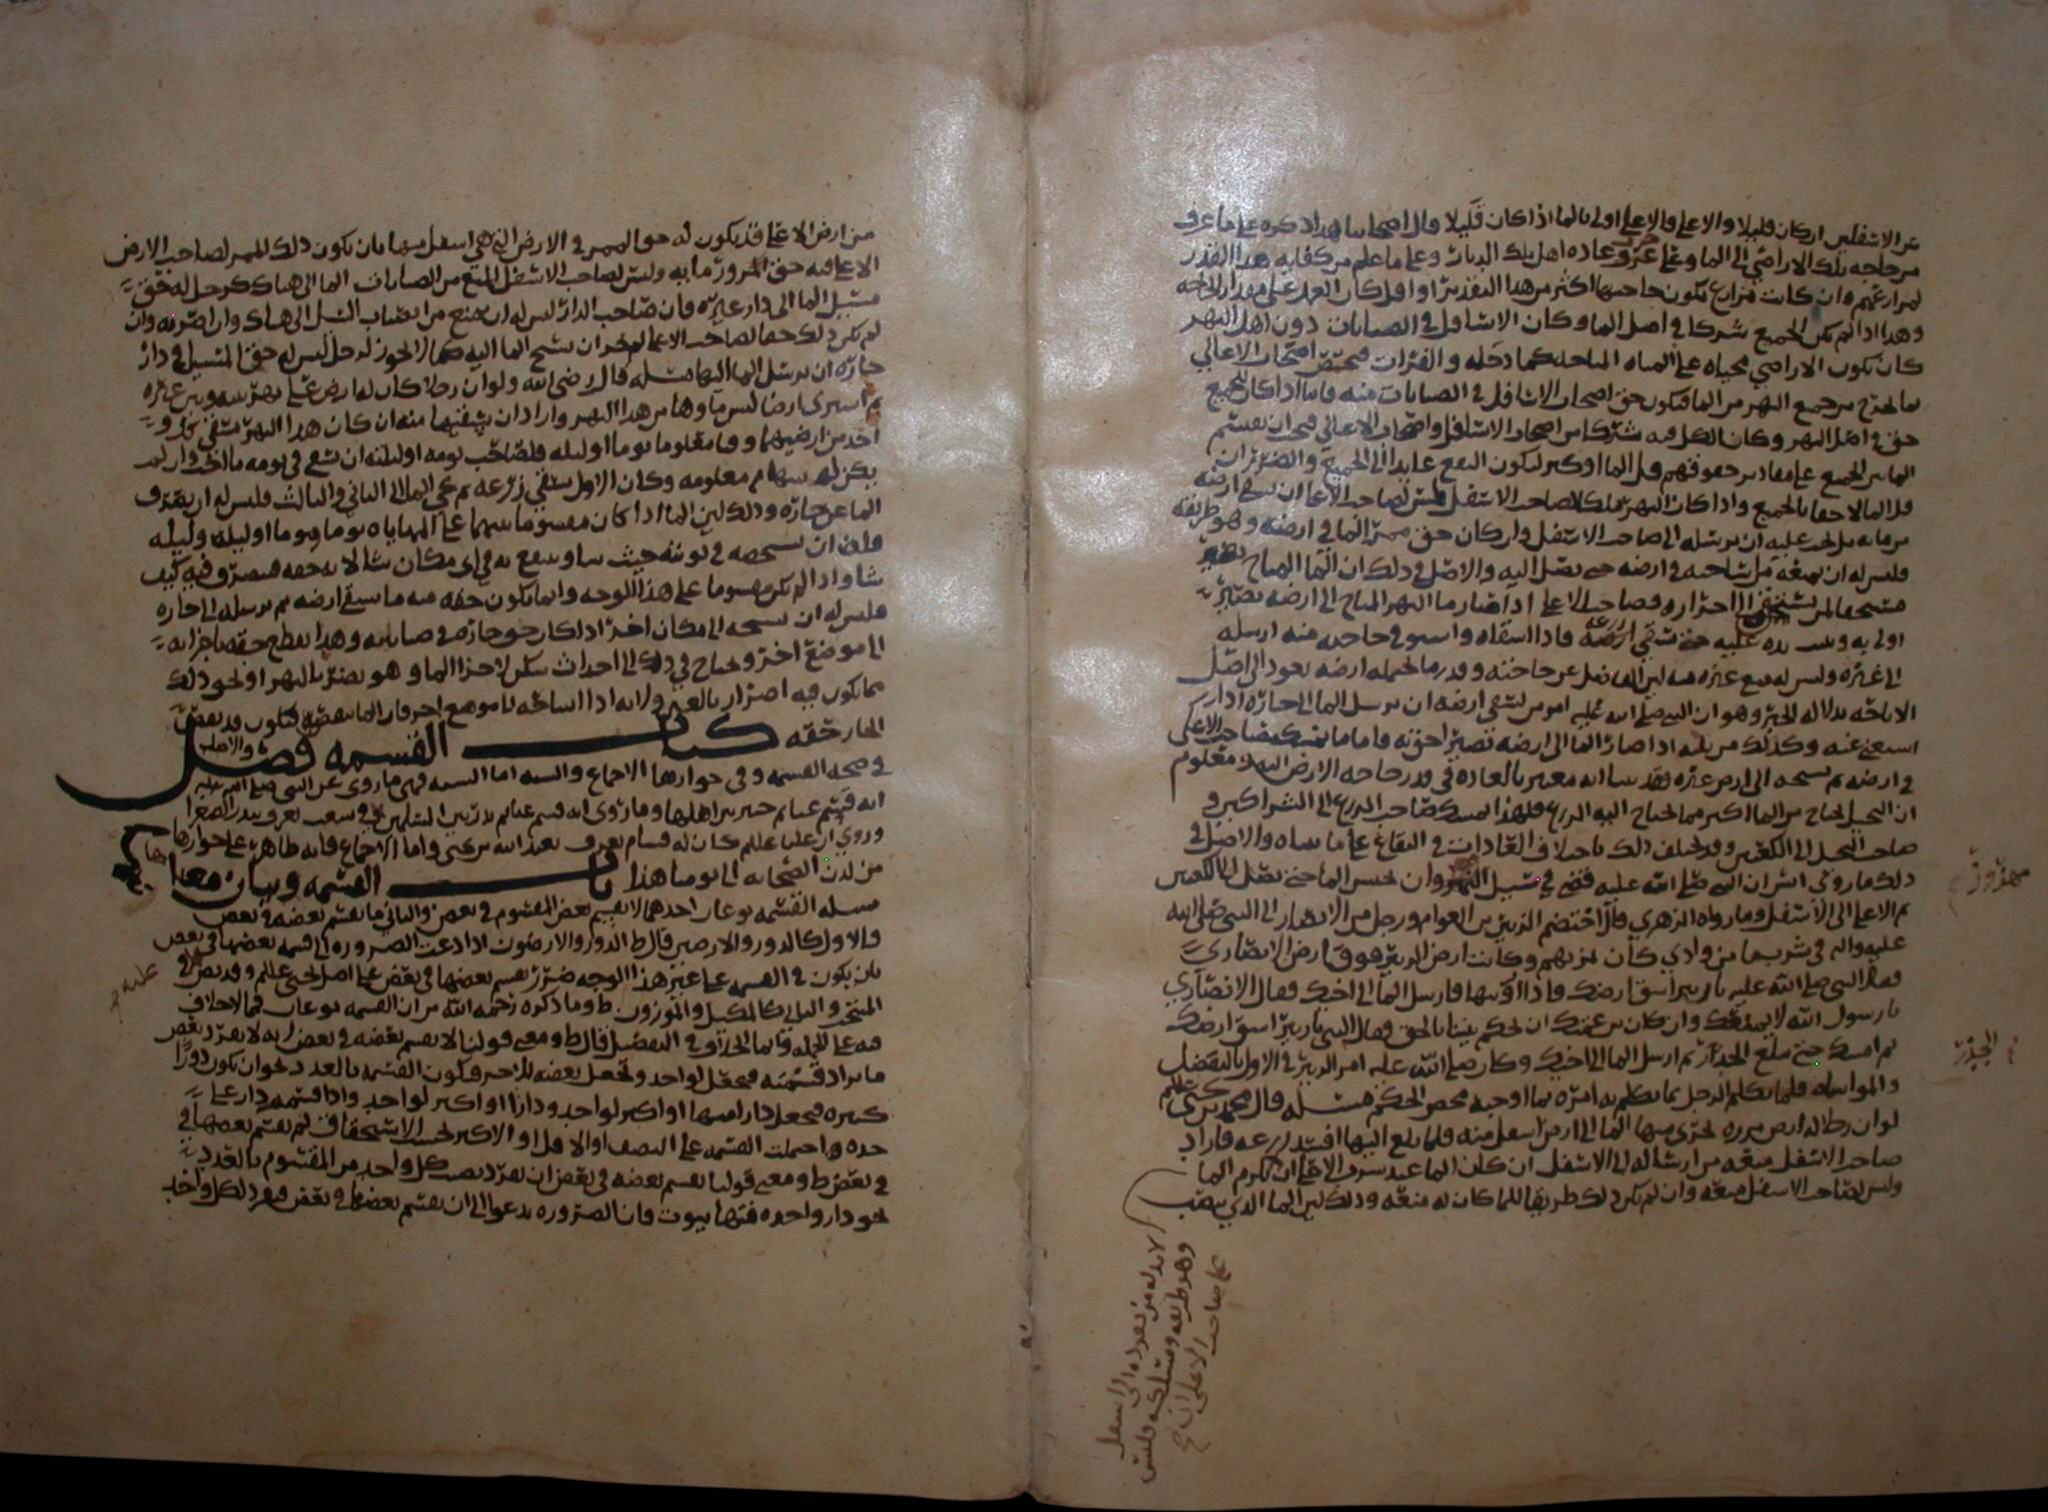 عن الاسفلين ان كان قليلا والاعلى فالاعلى اولى بالما اذا كان قليلا قال اصحابنا هذا ذكره على ما عرف
من حاجه تلك الاراضي الى الما وعلى عرف عاده اهل تلك الديار وعلى ما علم من كفايه هذا القدر
لمزارعهم وان كانت مزارع تكون حاجتها اكثر من هذا التقدير او اقل كان العمل على مقدار الحاجه
وهذا اذا لم يكن الجميع شركا في اصل الما وكان الاسافل في الصبابات دون اهل النهر
كان تكون الاراضي محياه على المياه المباحه كما دجله والفرات فيختص اصحاب الاعالي
بما يخرج من جميع النهر من الما فيكون حق اصحاب الاسافل في الصبابات منه فاما اذا كان للجميع
حق في اصل النهر وكان الكل فيه شركا من اصحاب الاسافل واصحاب الاعالي فيجب ان يقسم
الما بين الجميع على مقادير حقوقهم قل الما او كثر ليكون النفع عايدا الى الجميع والضرر ان
قل الما لاحقا بالجميع واذا كان النهر ملكا لصاحب الاسفل فليس لصاحب الاعلى ان يسقي ارضه
من مايه بل يجب عليه ان يرسله الى صاحب الاسفل وان كان حق ممر الما في ارضه وهو طريقه
فليس له ان يمنعه من اساحته في ارضه حتى يصل اليه والاصل في ذلك ان الما المباح يصير
مستحقا لمن احرازه وصاحب الاعلى اذا صار ما النهر المباح الى ارضه يصير
اولى به وتثبت يده عليه حتى يسقي ارضه فاذا استقاه واستوفى حاجته منه ارسله
الى غيره وليس له منع غيره منه لان الفاضل عن حاجته وقدر ما تحمله ارضه يعود الى اصل
الاباحه بدلاله الخبر وهو ان النبي صلى الله عليه امر من يسقي ارضه ان يرسل الما الى جاره اذا
استغنى عنه وكذلك من اذا صار الما الى ارضه تصير احق به واما ما يمسكه صاحب الاعلى
في ارضه ثم يسيحه الى ارض غيره فقد بينا انه معتبر بالعاده في قدر حاجه الارض اليه معلوم
ان النخيل يحتاج من الما اكثر مما يحتاج اليه الزرع فلهذا يمسك صاحب الزرع الى الشراكين و
صاحب النخل الى الكعبين وقد يختلف ذلك باختلاف العادات في البقاع على ما بيناه والاصل في
ذلك ما روي ان النبي صلى الله عليه قضى في سيل مهزور ان يحبس الما حتى يصل الى الكعبين
ثم الاعلى الى الاسفل وما رواه الزهري قال اختصم الزبير بن العوام ورجل من الانصار الى النبي صلى الله
عليه واله في شرب ما من وادي كان لهم وكانت ارض الزبير فوق ارض الانصاري
فقال النبي صلى الله عليه يا زبير اسق ارضك فاذا ارويتها فارسل الما الى اخيك فقال الانصاري
يا رسول الله لا يمنعك وان كان بن عمتك ان تحكم بيننا بالحق فقال النبي يا زبير اسق ارضك
ثم امسك حتى يبلغ الجدر ثم ارسل الما الى اخيك وكان صلى الله عليه امر الزبير في الاول بالتفضل
والمواساه فلما تكلم الرجل بما تكلم به امره بما اوجبه محض الحكم مسله قال محمد بن يحيى عليلم
لو ان رجلا له ارض مزدرعه يجري منها الما الى ارض اسفل منه فلما بلغ اليها افسد زرعه فاراد
صاحب الاسفل منعه من ارساله الى الاسفل ان كان الما عند سرف الاعلى ان الما
وليس لصاحب الاسفل منعه وان لم يكن ذلك طريقا للما كان له منعه وذلك لان الما الذي ينصب
مهزور
الجدر
لا بد له من نفوذه الى اسفل
وهو طريقه ومسلكه فليس
على صاحب الاعلى ان
من ارض الاعلى قد يكون له حق الممر في الارض التي هي اسفل منها بان يكون ذلك الممر لصاحب الارض
الاعلى فيه حق المرور مايه وليس لصاحب الاسفل المنع من انصباب الما الى هناك كرجل له حق
مسيل الما الى دار غيره فان صاحب الدار ليس له ان يمنع من انصباب السيل الى هناك وان اضر به وان
لم يكن ذلك حقا لصاحب الاعلى لم يجز ان يسيح الما اليه كما لا يجوز لرجل ليس له حق المسيل في دار
جاره ان يرسل الما اليها مسله قال رضي الله ولو ان رجلا كان له ارض على نهر بينه وبين غيره
ثم اشترى ارضا ليس ماوها من هذا النهر واراد ان يسقيها منه ان كان هذا النهر يسقي كل و
احد من ارضيهما وقتا معلوما يوما او ليله فلصاحب يومه او ليلته ان يسقي في يومه ما احب وان لم
يكن له سهام معلومه وكان الاول يسقي زرعه ثم يخلي الما الى الثاني والثالث فليس له ان يصرف
الما عن جاره وذلك لان الما اذا كان مقسوما بينهما على المهاياه يوما ويوما او ليله وليله
فله ان يسيحه في نوبته حيث شا وينتفع به في اي مكان شا لانه حقه فيتصرف فيه كيف
شا واذا لم يكن مقسوما على هذا الوجه وانما يكون حقه منه ما يسقي ارضه ثم يرسله الى جاره
فليس له ان يسيحه الى مكان اخر اذا كان حق جاره في صبابته وهذا يقطع حقه باجرايه
الى موضع اخر ويحتاج في ذلك الى احداث سكر لاجرا الما وهو يضر بالنهر او نحو ذلك
مما يكون فيه اضرار بالغير ولانه اذا اساحه الى موضع اخر فان الما ينقص فيكون قد نقص
الجار حقه كتاب القسمه فصل والاصل
في صحه القسمه وفي جوازها الاجماع والسنه اما السنه فهي ما روي عن النبي صلى الله عليه
انه قسم غنايم خيبر بين اهلها وما روي انه قسم غنايم بدر بين المسلمين في شعب يعرف بالصفرا
وروي ان عليا عليلم كان له قسام يعرف بعبد الله بن يحيى واما الاجماع فانه ظاهر على جوازها
من لدن الصحابه الى يومنا هذا باب القسمه وبيان معناها
مسله القسمه نوعان احدهما لا يقسم بعض المقسوم في بعض والثاني ما يقسم بعضه في بعض
فالاول كالدور والارضين قال ط الدور والارضون اذا دعت الضروره الى قسمه بعضها في بعض
بان يكون في القسمه على غير هذا الوجه ضرر يقسم بعضها في بعض على اصل يحيى عليلم وقد نص في
المنتخب والثاني كالمكيل والموزون ط وما ذكره رحمه الله من ان القسمه نوعان فما لا خلاف
فيه على الجمله وانما الخلاف في التفصيل قال ط ومعنى قولنا لا يقسم بعضه في بعض انه لا يفرد بعض
ما يراد قسمته فيجعل لواحد ويجعل بعضه للاخر فتكون القسمه بالعدد نحو ان يكون دورا
كثيره فيجعل دار منها او اكثر لواحد ودارا او اكثر لواحد واذا قسمه دار على
حده واحتملت القسمه على النصف او الاقل او الاكثر بحسب الاستحقاق لم يقسم بعضها في
في بعض ط ومعنى قولنا يقسم بعضه في بعض ان يفرد نصيب كل واحد من المقسوم بالعدد
نحو دار واحده فيها بيوت فان الضروره تدعو الى ان يقسم بعضها في بعض فيفرد لكل واحد
عليه